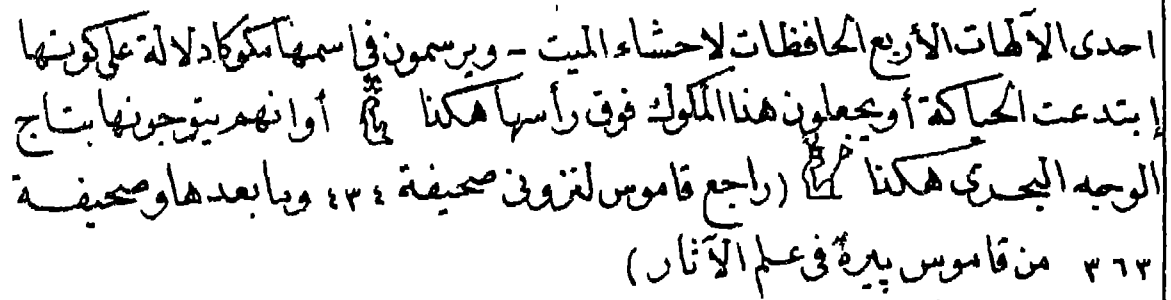 احدى الآلهات الأربع الحافظات لاحشاء الميت - ويرسمون فى اسمها مكوكا دلالة على كونها
إبتدعت الحياكة أو يجعلون هذا المكوك فوق رأسها هكذا أو انهم يتوجونها بتاج
الوجه البحرى هكذا (راجع قاموس لنزونى صحيفة ٤٣٤ وما بعدها وصحيفة
٣٦٣ من قاموس پيرة فى علم الآثار)